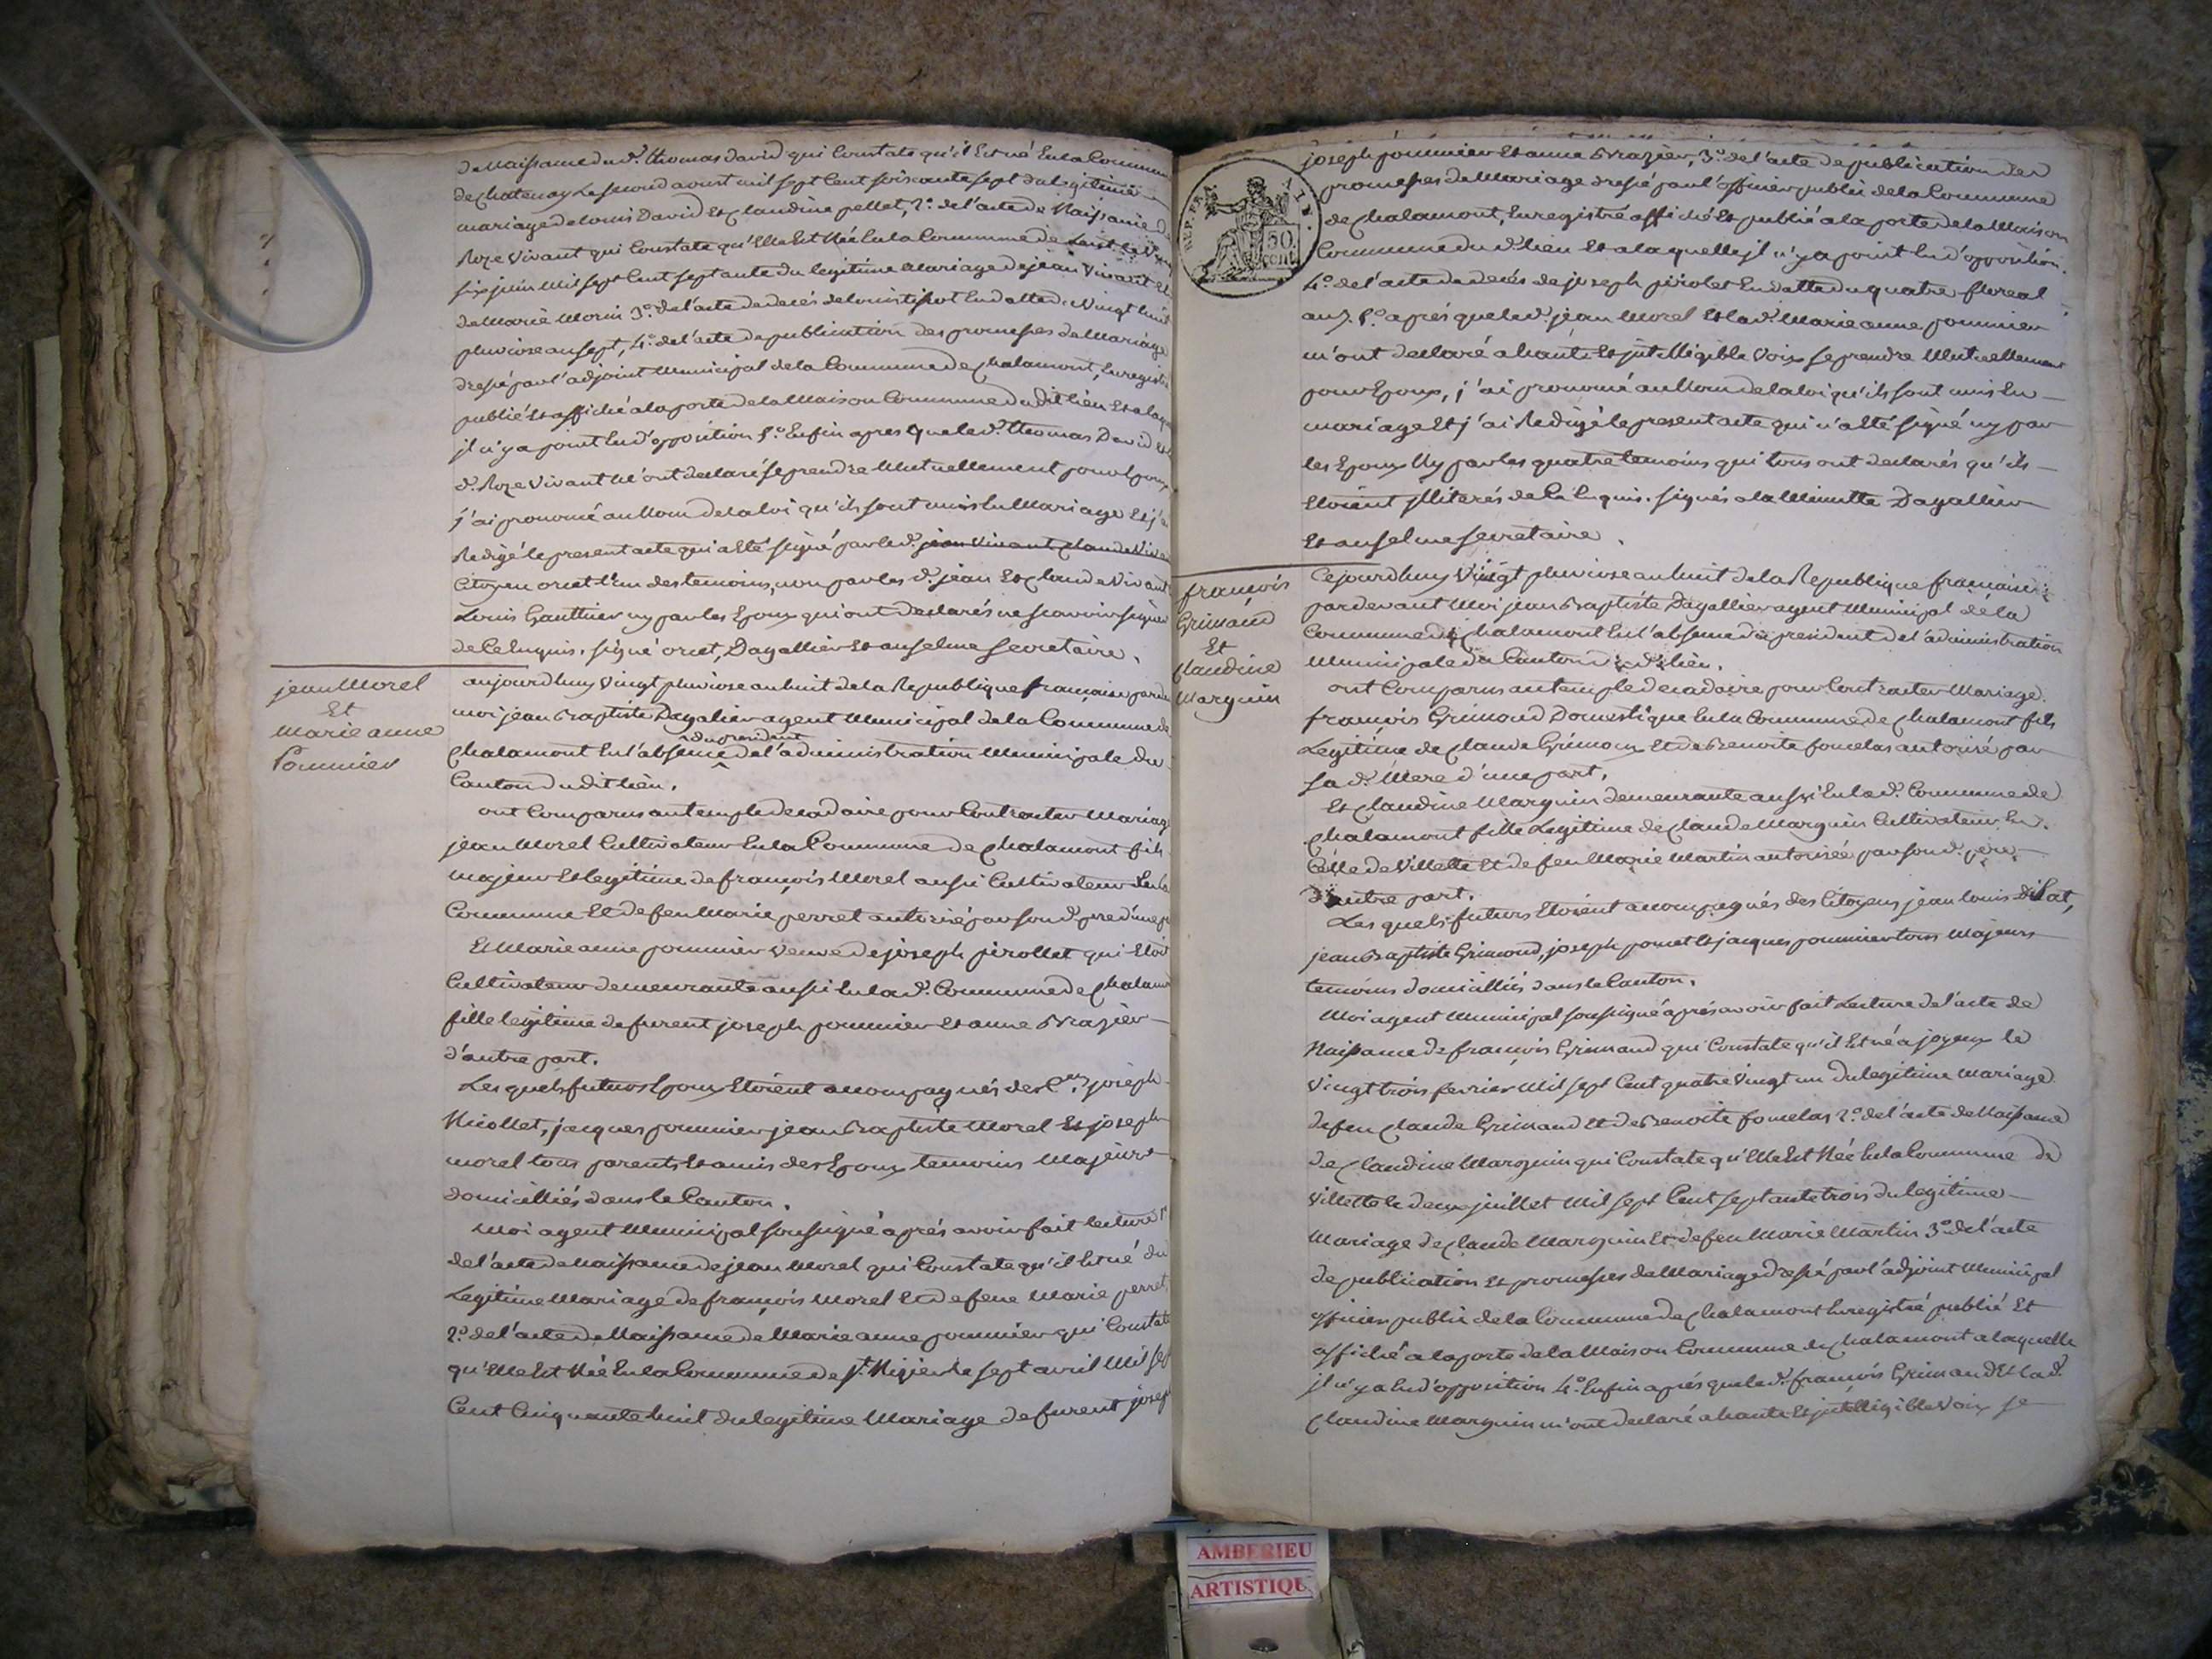 de Naissance du d. thomas david qui Constate qu'il Est né En la Commune
de chatenay Le second aoust mil sept Cent soixante sept du legitime
mariage de louis David et claudine pellet, 2.º de l'acte de Naissance de
Roze vivant qui Constate qu'Elle Est Née En la Commune de
six juin mil sept Cent septante du legitime mariage de jean Vivant et
de Marie Morin 3.º de l'acte de deces de louis tissot En datte du Vingt huit
pluviose an sept, 4.º de l'acte de publication des promesses de Mariage
dressé par l'adjoint municipal de la Commune de chalamont, Enregistré
publié Et affiché a la porte de la Maison Commune dudit lieu Et a laquelle
il n'y a point Eu d'opposition 5.º Enfin apres que le d. thomas David Et la
d. Roze Vivant M'ont declaré se prendre Mutuellement pour Epoux
j'ai prononcé au Nom de la loi qu'ils sont unis En Mariage Et j'ai
Redigé le present acte qui a Eté signé par le d. jean Vivant claude Vivant
Citoyen oriet l'un des temoins, non par les d. jean Et claude Vivant
Louis Gauthier ny par les Epoux qui ont declarés ne scavoir signer
de Ce Enquis. signé oriet, Dagallier Et anselme Secretaire.
jean Morel
Et
Marie anne
Pommier
aujourdhuy Vingt pluviose an huit de la Republique francaise par de
moi jean Baptiste Dagalier agent Municipal de la Commune de
du president
chalamont En l'absence de l'administration Municipale du
Canton dudit lieu.
ont Comparus au temple decadaire pour Contracter Mariage
jean Morel Cultivateur En la Commune de chalamont fils
majeur Et legitime de françois Morel aussi Cultivateur En la
Commune Et de feu Marie perret autorisé par son d. pere d'une p
Et Marie anne pommier veuve de joseph pirollet qui Etoit
Cultivateur demeurante aussi En la d. Commune de chalamont
fille legitime de furent joseph pommier Et anne Brazier
d'autre part.
Les quels futurs Epoux Etoient accompagnés des C.ens joseph
Nicollet, jacques pommier jean Baptiste Morel Et joseph
morel tous parents Et amis des Epoux temoins Majeurs
domicilliés dans le Canton.
Moi agent Municipal soussigné aprés avoir fait lecture 1º
de l'acte de Naissance de jean Morel qui Constate qu'il Est né du
Legitime Mariage de françois Morel Et de feue Marie perret,
2.º de l'acte de Naissance de Marie anne pommier qui Constate
qu'Elle Est Née En la Commune de S.t Nizier Le sept avril Mil sept
Cent Cinquante huit du legitime Mariage de furent joseph
REP. FRA
50
cent.
joseph pommier Et anne Brazier, 3.º de l'acte de publication des
promesses de Mariage dressé par l'officier public de la Commune
de chalamont, Enregistré affiché Et publié a la porte de la Maison
Commune du d. lieu Et a laquelle jl n'y a point Eu d'opposition.
4.º de l'acte de decés de joseph pirolet En datte du quatre floreal
an 7. 5.º aprés que le d. jean Morel Et la d. Marie anne pommier
m'ont declaré a haute Et jntelligible Voix se prendre Mutuellement
pour Epoux, j'ai prononcé au Nom de la loi qu'ils sont unis En
mariage Et j'ai Redigé le present acte qui n'a Eté signé ny par
les Epoux Ny par les quatre temoins qui tous ont declarés qu'ils
Etoient jlliterés de Ce Enquis. signés a la Minutte Dagallier
Et anselme Secretaire.
françois
Grimaud
Et
Claudine
Marguin
Cejourdhuy Vingt pluviose an huit de la Republique française
pardevant Moi jean Baptiste Dagallier agent Municipal de la
Commune de chalamont En l'absence du president de l'administration
Municipale du Canton du d. lieu.
ont Comparus au temple decadaire pour Contracter Mariage.
françois Grimoud Domestique En la Commune de chalamont fils
Legitime de claude Grimoux Et de Benoite fomelas autorisé par
sa d. Mere d'une part.
Et Claudine Marguin demeurante aussi En la d. Commune de
chalamont fille Legitime de claude Marguin Cultivateur En
Celle de Villette Et de feu Marie Martin autorisée par son d. pere
d'autre part.
Les quels futurs Etoient accompagnés des Citoyens jean louis Dilat,
jean Baptiste Grimoud, joseph pomet Et jacques pommier tous Majeurs
temoins domicilliés dans le Canton.
Moi agent Municipal soussigné aprés avoir fait Lecture de l'acte de
Naissance de françois Grimaud qui Constate qu'il Est né a joyeux le
Vingt trois fevrier Mil sept Cent quatre Vingt un du legitime Mariage
de feu claude Grimaud Et de Benoite fomelas 2.º de l'acte de Naissance
de claudine Marguin qui Constate qu'Elle Est Née En la Commune de
Villette le deux juillet Mil sept Cent septante trois du legitime
Mariage de claude Marguin Et de feu Marie Martin 3.º de l'acte
de publication Et promesses de Mariage dressé par l'adjoint Municipal
officier public de la Commune de chalamont Enregistré publié Et
affiché a la porte de la Maison Commune de chalamont a laquelle
jl n'y a Eu d'opposition 4.º Enfin aprés que le d. françois Grimaud Et la d.
claudine Marguin m'ont declaré a haute Et jntelligible Voix se
AMBERIEU
ARTISTIQU